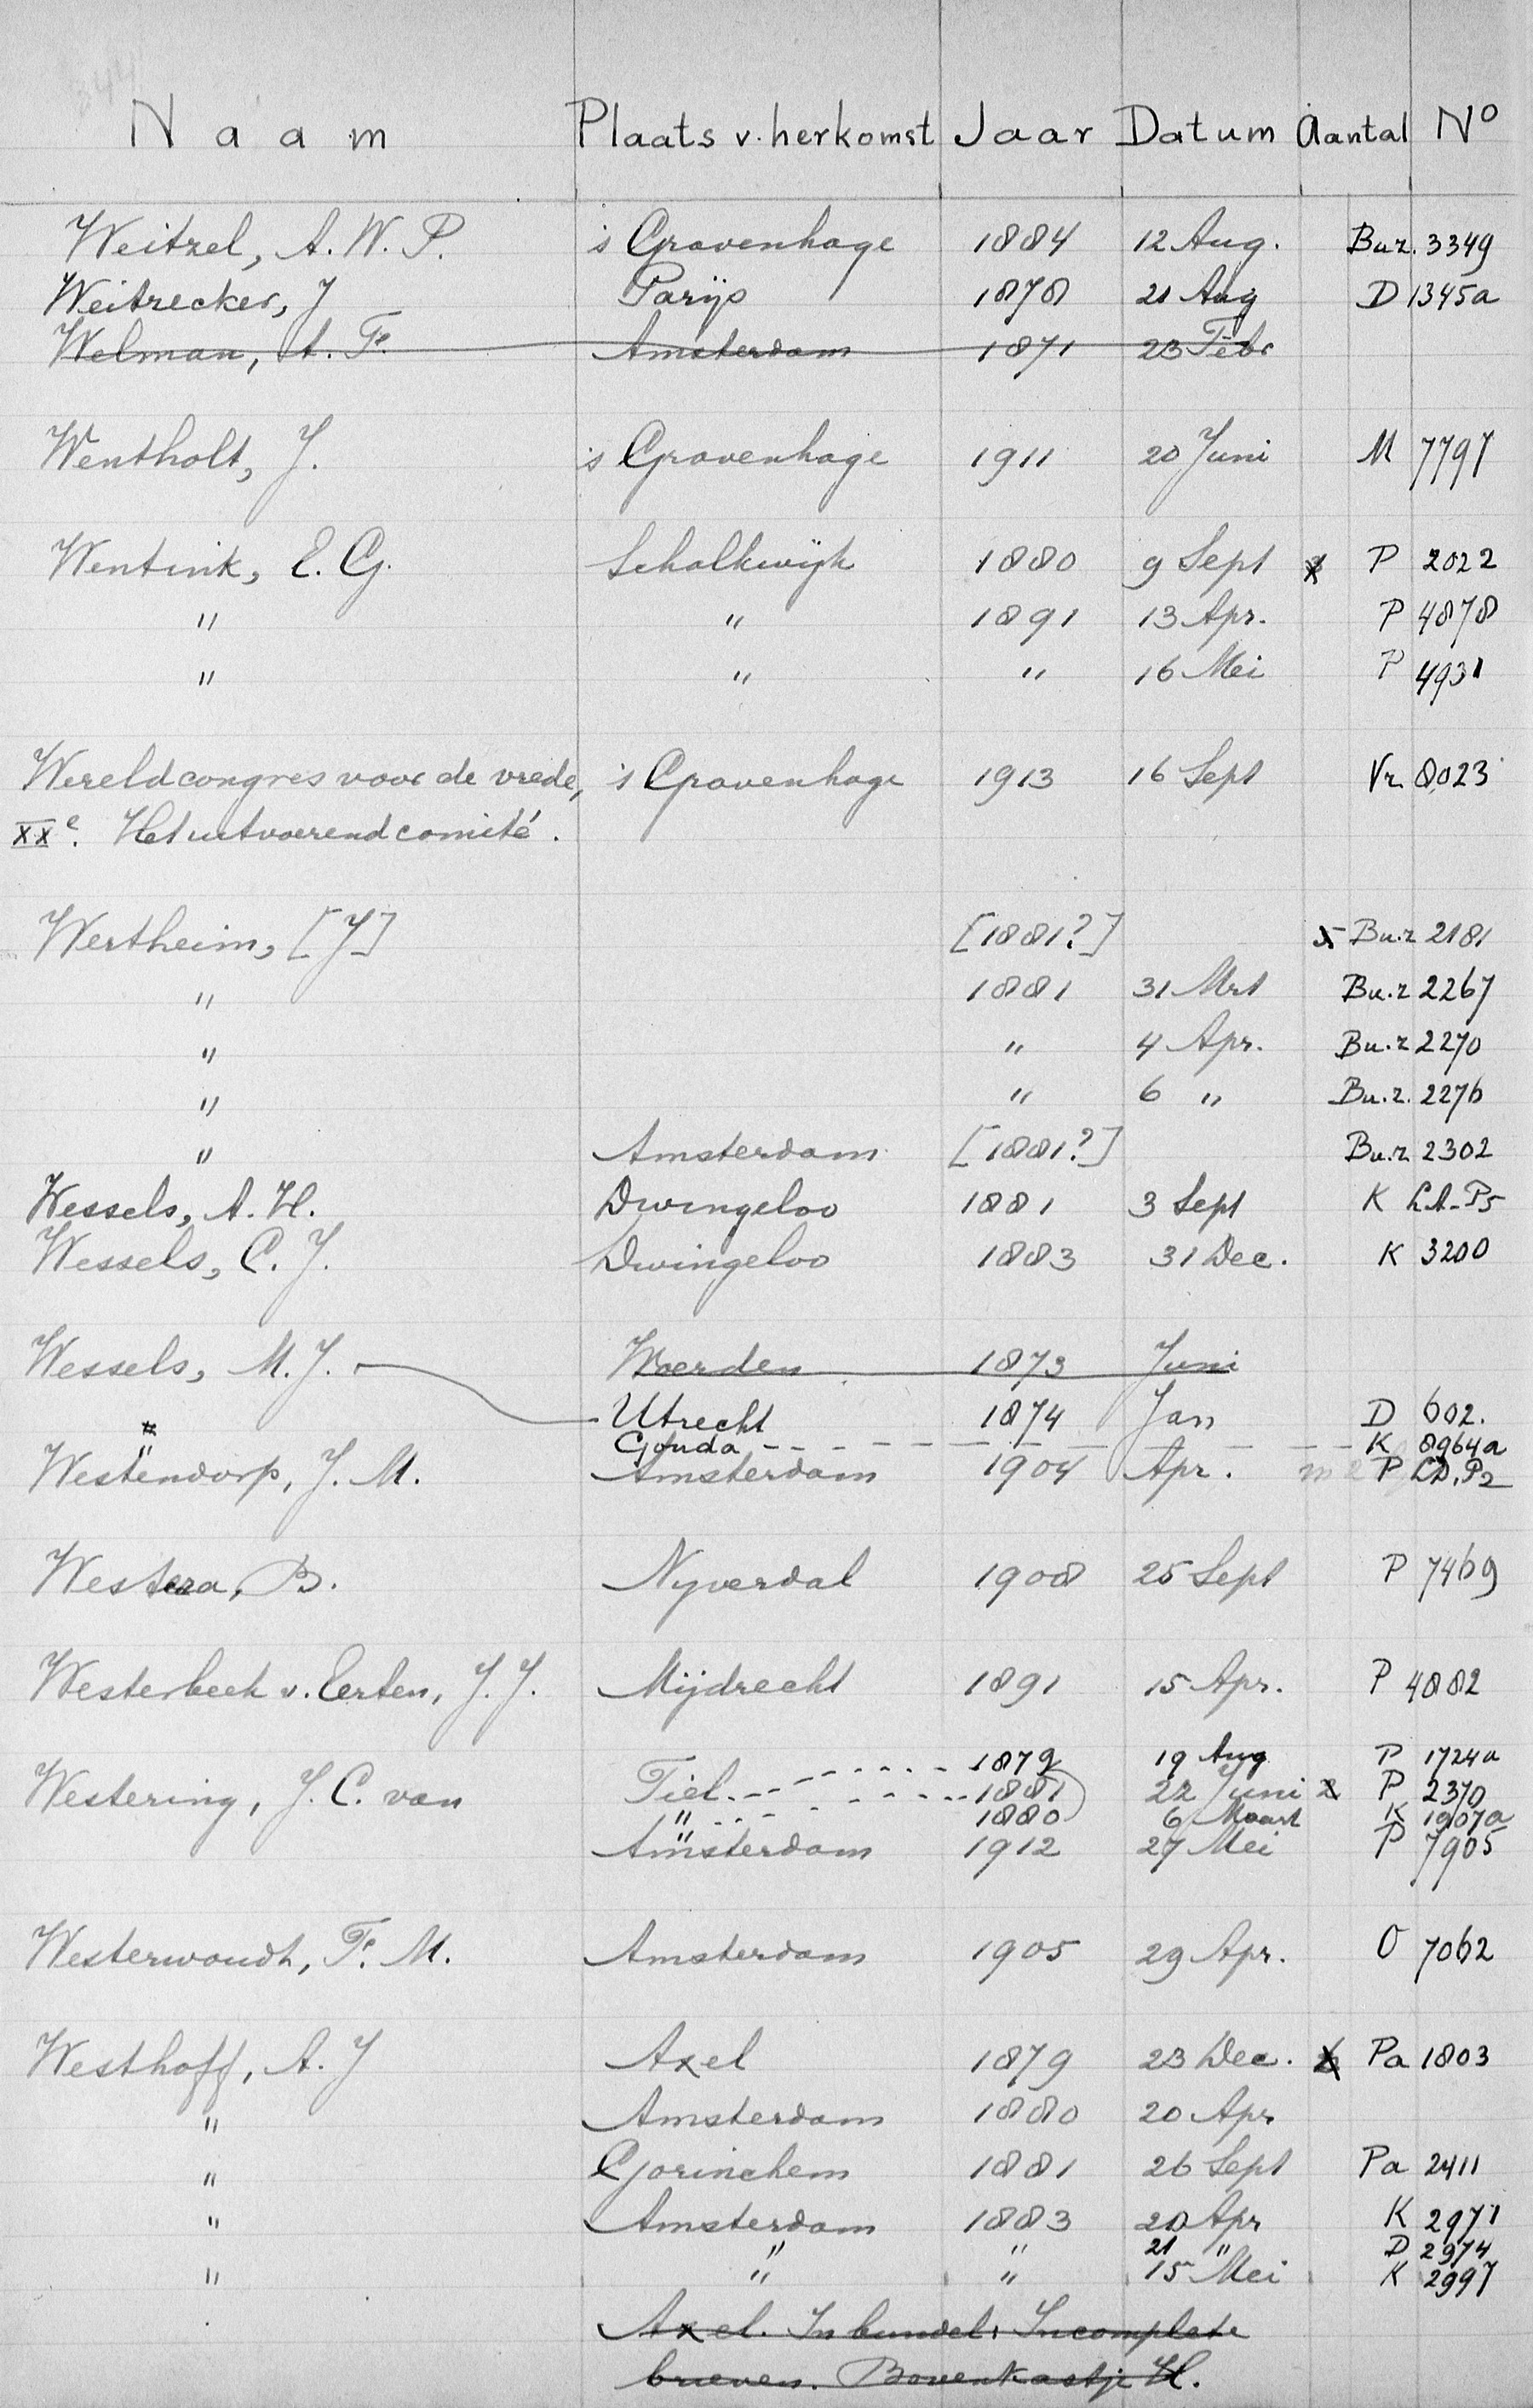 Naam Plaats v. herkomst Jaar Datum Aantal No
Weitzel, A. W. P. 's Gravenhage 1884 12 Aug. Bu.z. 3349
Weitzecker, J Parijs 1878 21 Aug D 1345a
Welman, A. F. Amsterdam 1871 23 Febr
Wentholt, J. 's Gravenhage 1911 20 Juni M 7797
Wentink, E. G. Schalkwijk 1880 9 Sept P 2022
" " 1891 13 Apr. P 4878
" " " 16 Mei P 4931
Wereldcongres voor de vrede, 's Gravenhage 1913 16 Sept Vr. 8023
XXe. Het uitvoerend comité.
Wertheim, [J] [1881?] 5 Bu.z 2181
" 1881 31 Mrt Bu.z 2267
" " 4 Apr. Bu.z 2270
" " 6 " Bu.z. 2276
" Amsterdam [1881?] Bu.z 2302
Wessels, A. H. Dwingeloo 1881 3 Sept K LA-P5
Wessels, C. J. Dwingeloo 1883 31 Dec. K 3200
Wessels, M. J. Woerden 1873 Juni
Utrecht 1874 Jan D 602.
" Gouda K 8964a
Westendorp, J. M. Amsterdam 1904 Apr. P LD.P2
Westera, B. Nyverdal 1908 25 Sept P 7469
Westerbeek v. Eerten, J. J. Mijdrecht 1891 15 Apr. P 4882
1879 19 Aug P 1724a
Westering, J. C. van Tiel 1881 22 Juni 2 P 2370
" 1880 6 Maart K 1907a
Amsterdam 1912 27 Mei P 7905
Westerwoudt, F. M. Amsterdam 1905 29 Apr. O 7062
Westhoff, A. J Axel 1879 23 Dec. Pa 1803
" Amsterdam 1880 20 Apr
" Gorinchem 1881 26 Sept Pa 2411
" Amsterdam 1883 20 Apr K 2971
" " 21 " D 2974
" " " 15 Mei K 2997
Axel. In bundel: Incomplete
brieven. Bovenkastje H.